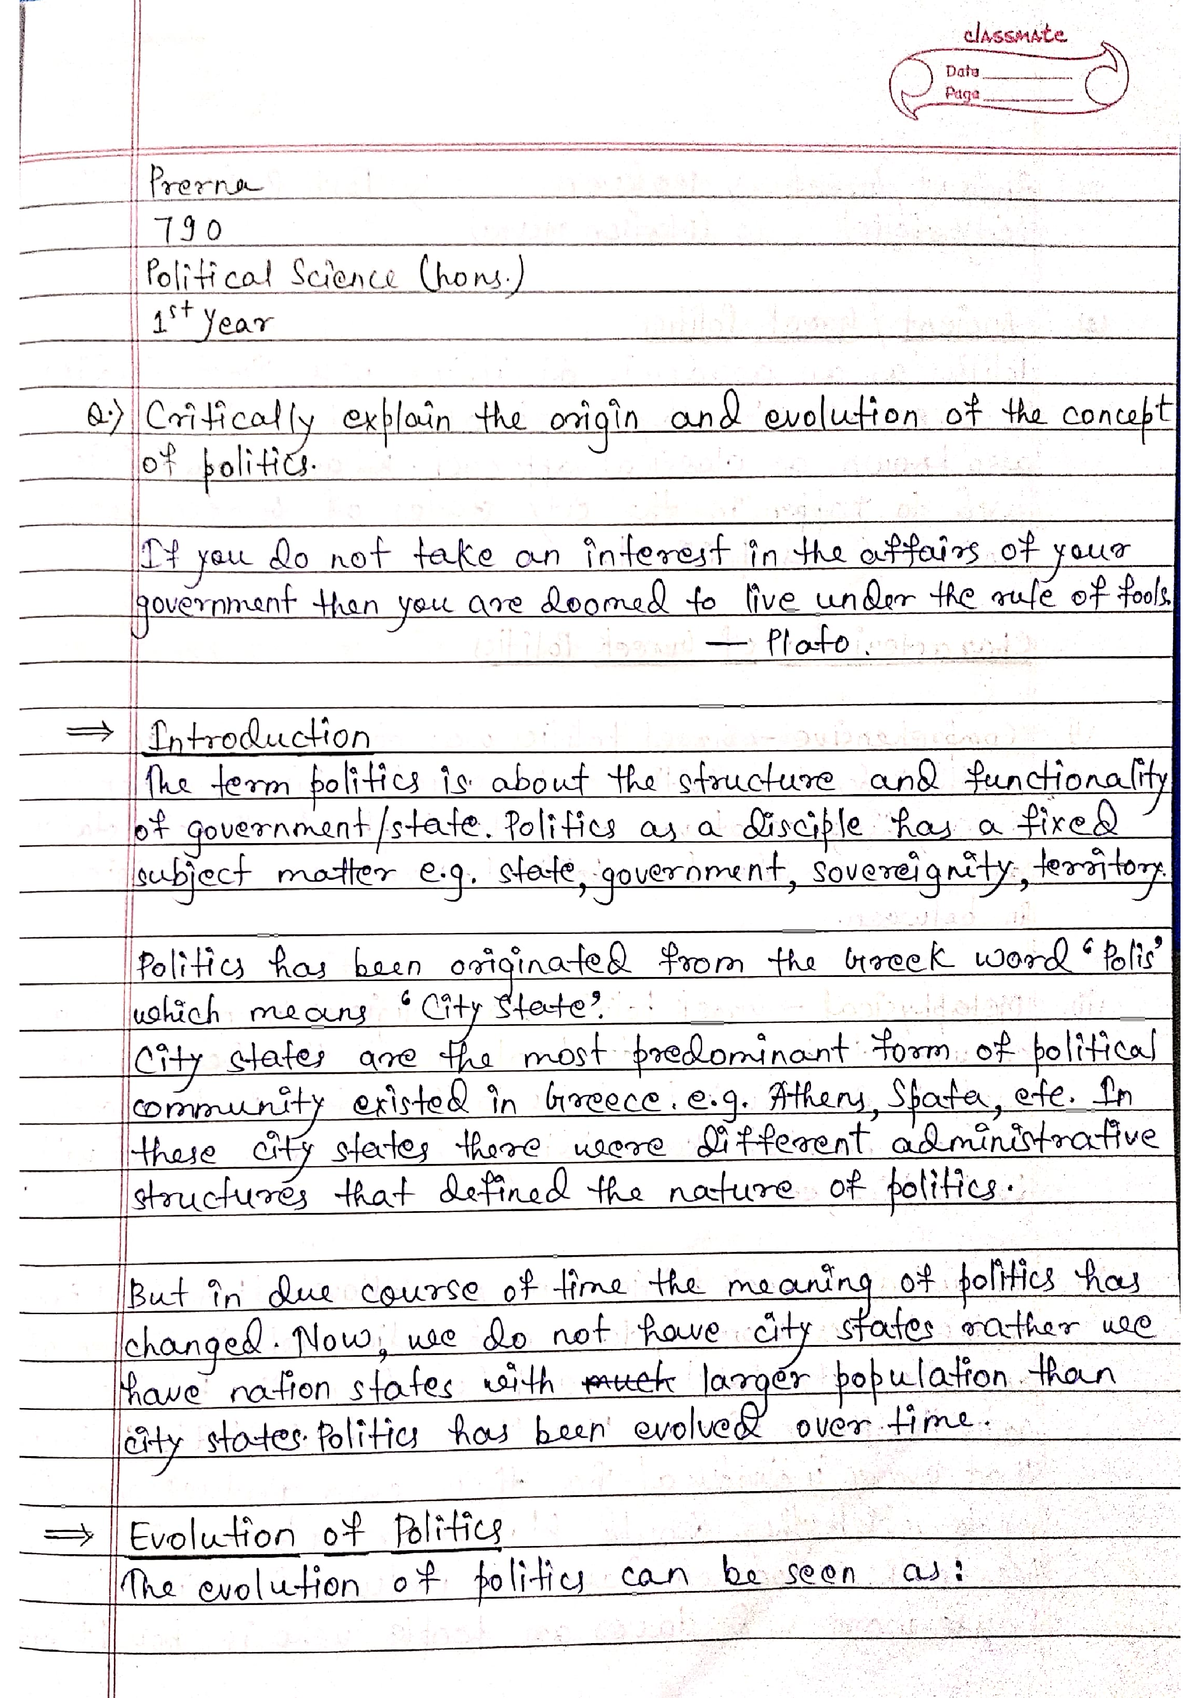 classmate
Date
Page
Prerna
790
Political Science (hons.)
1st Year
Q.) Critically explain the origin and evolution of the concept
of politics.
If you do not take an interest in the affairs of your
government then you are doomed to live under the rule of fools.
— Plato.
⇒ Introduction
The term politics is about the structure and functionality
of government/state. Politics as a disciple has a fixed
subject matter e.g. state, government, sovereignity, territory.
Politics has been originated from the Greek word ‘Polis’
which means ‘City State’.
City states are the most predominant form of political
community existed in Greece. e.g. Athens, Spata, etc. In
these city states there were different administrative
structures that defined the nature of politics.
But in due course of time the meaning of politics has
changed. Now, we do not have city states rather we
have nation states with much larger population than
city states. Politics has been evolved over time.
⇒ Evolution of Politics
The evolution of politics can be seen as: